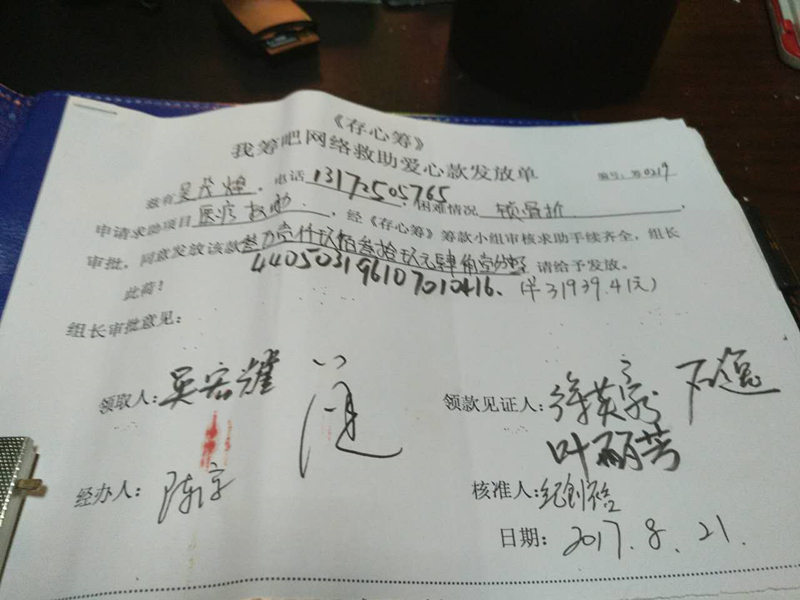 《存心筹》
我筹吧网络救助爱心款发放单
编号：筹0219
兹有吴茂雄，电话13172505765，困难情况 颌骨折，
申请求助项目医疗救助，经《存心筹》筹款小组审核求助手续齐全，组长
审批，同意发放该款叁万壹仟玖佰叁拾玖元肆角壹分整 请给予发放。
440503196107010416.（￥31939.41元）
此荷！
组长审批意见：
领取人：吴宏
领款见证人：
叶丽芳
经办人：陈
核准人：纪创
日期：2017.8.21.